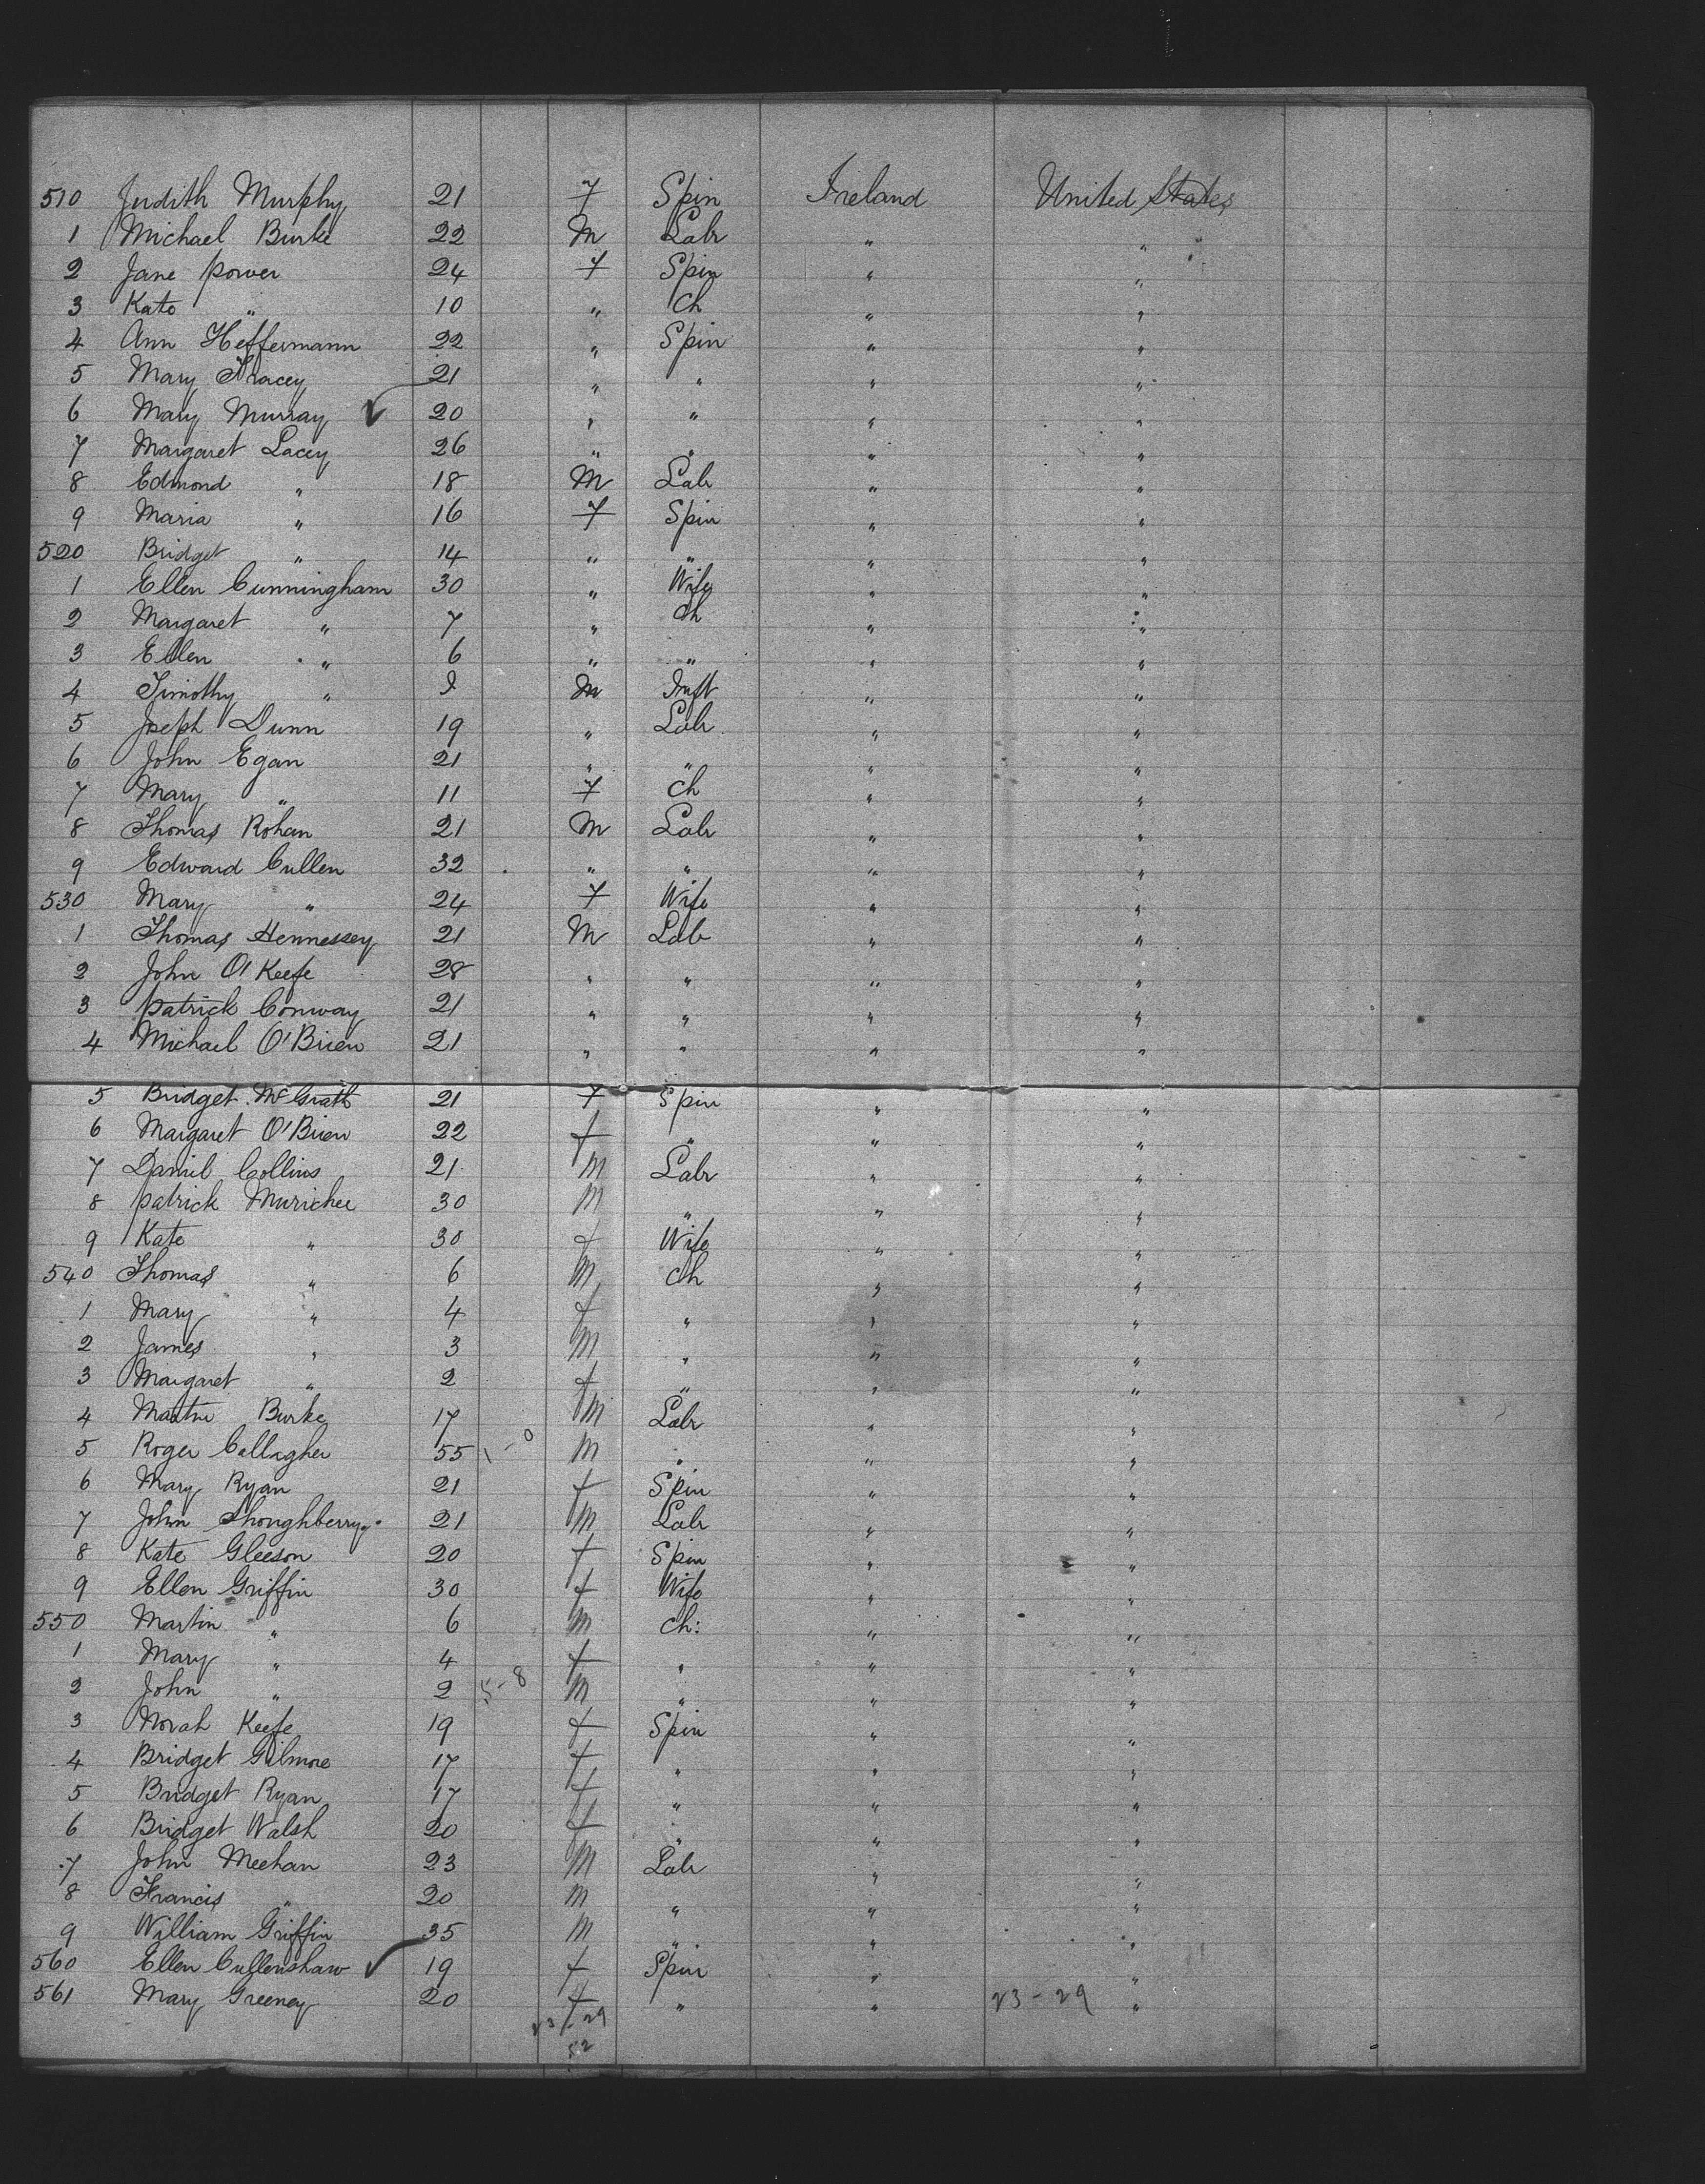 510 Judith Murphy 21 F Spin Ireland United States
1 Michael Burke 22 M Labr " "
2 Jane Power 24 F Spin " "
3 Kate " 10 " Ch " "
4 Ann Heffermann 22 " Spin " "
5 Mary Tracey 21 " " " "
6 Mary Murray 20 " " " "
7 Margaret Lacey 26 " " " "
8 Edmond " 18 M Lab " "
9 Maria " 16 F Spin " "
520 Bridget " 14 " " " "
1 Ellen Cunningham 30 " Wife " "
2 Margaret " 7 " Ch " "
3 Ellen " 6 " " " "
4 Timothy " M Inft " "
5 Joseph Dunn 19 " Labr " "
6 John Egan 21 " " " "
7 Mary " 11 F Ch " "
8 Thomas Rohan 21 M Labr " "
9 Edward Cullen 32 " " " "
530 Mary " 24 F Wife " "
1 Thomas Hennessey 21 M Lab " "
2 John O'Keefe 28 " " " "
3 Patrick Conway 21 " " " "
4 Michael O'Brien 21 " " " "
5 Bridget McGrath 21 F Spin " "
6 Margaret O'Brien 22 f " " "
7 Daniel Collins 21 M Labr " "
8 Patrick 30 M " " "
9 Kate " 30 f Wife " "
540 Thomas " 6 M Ch " "
1 Mary " 4 f " " "
2 James " 3 M " " "
3 Margaret " 2 f " " "
4 Burke 17 M Labr " "
5 Roger Callagher 55 1-0 M " " "
6 Mary Ryan 21 f Spin " "
7 John Shoughberry 21 M Labr " "
8 Kate Gleeson 20 f Spin " "
9 Ellen Griffin 30 f Wife " "
550 Martin " 6 M Ch: " "
1 Mary " 4 f " " "
2 John " 2 5-8 M " " "
3 Norah Keefe 19 f Spin " "
4 Bridget Gilmore 17 f " " "
5 Bridget Ryan 17 f " " "
6 Bridget Walsh 20 f " " "
7 John Meehan 23 M Labr " "
8 Francis " 20 M " " "
9 William Griffin 35 M " " "
560 Ellen Cullenshaw 19 f Spin " "
561 Mary Greeney 20 f " " 23-29 "
23/29
52